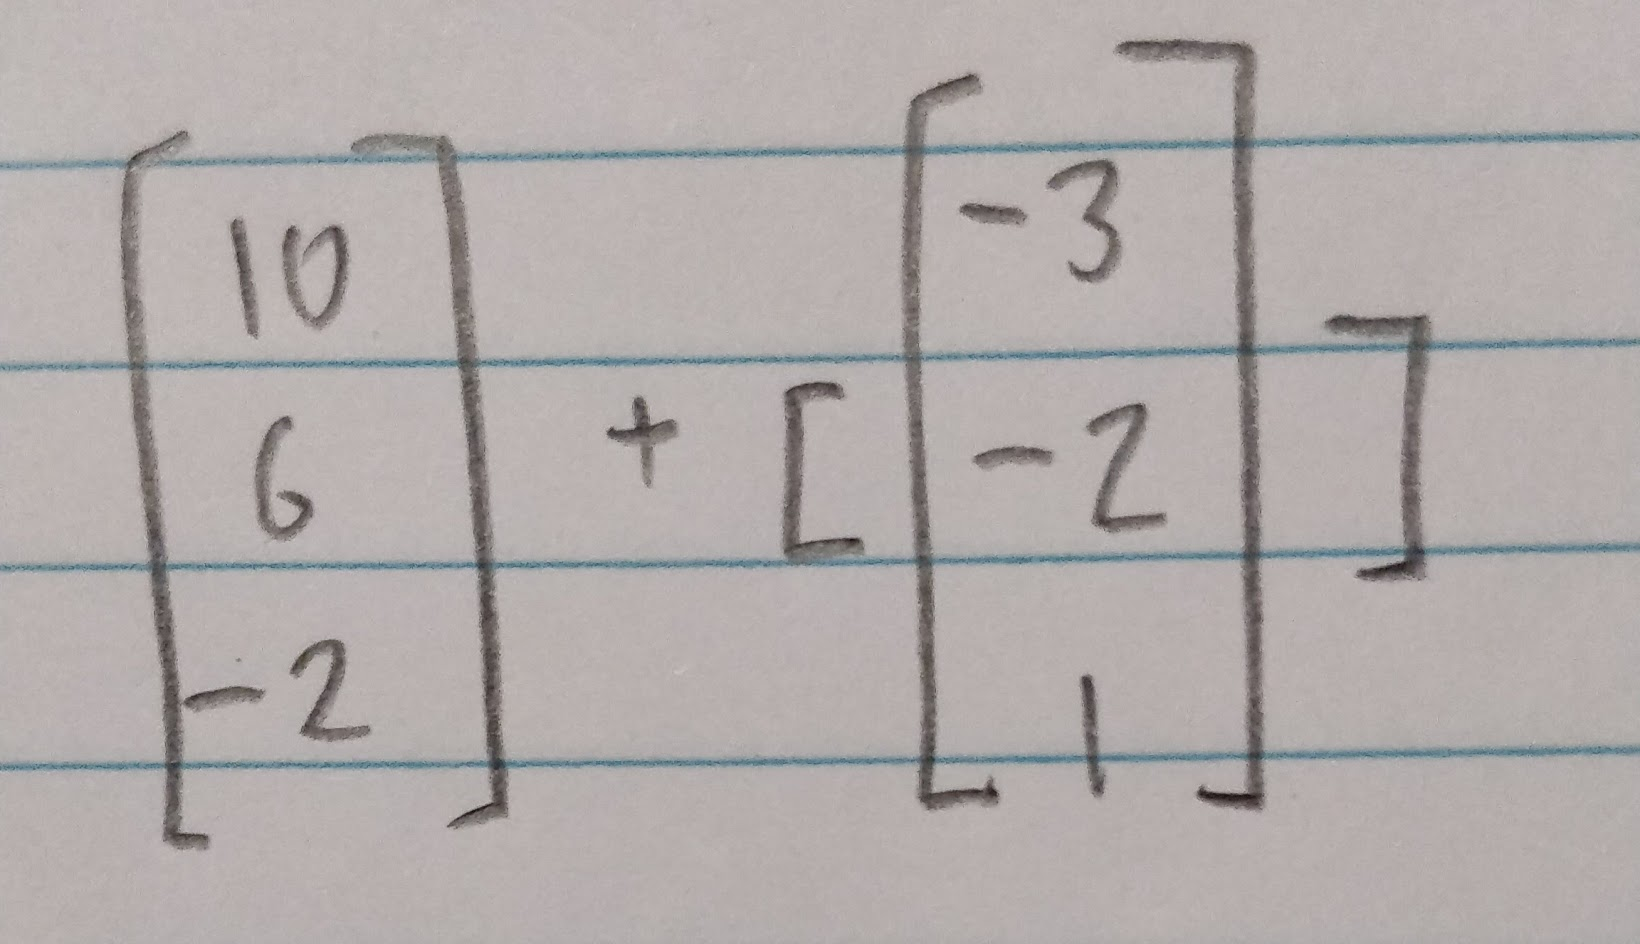 [10
6
-2] + [[-3
-2
1]]